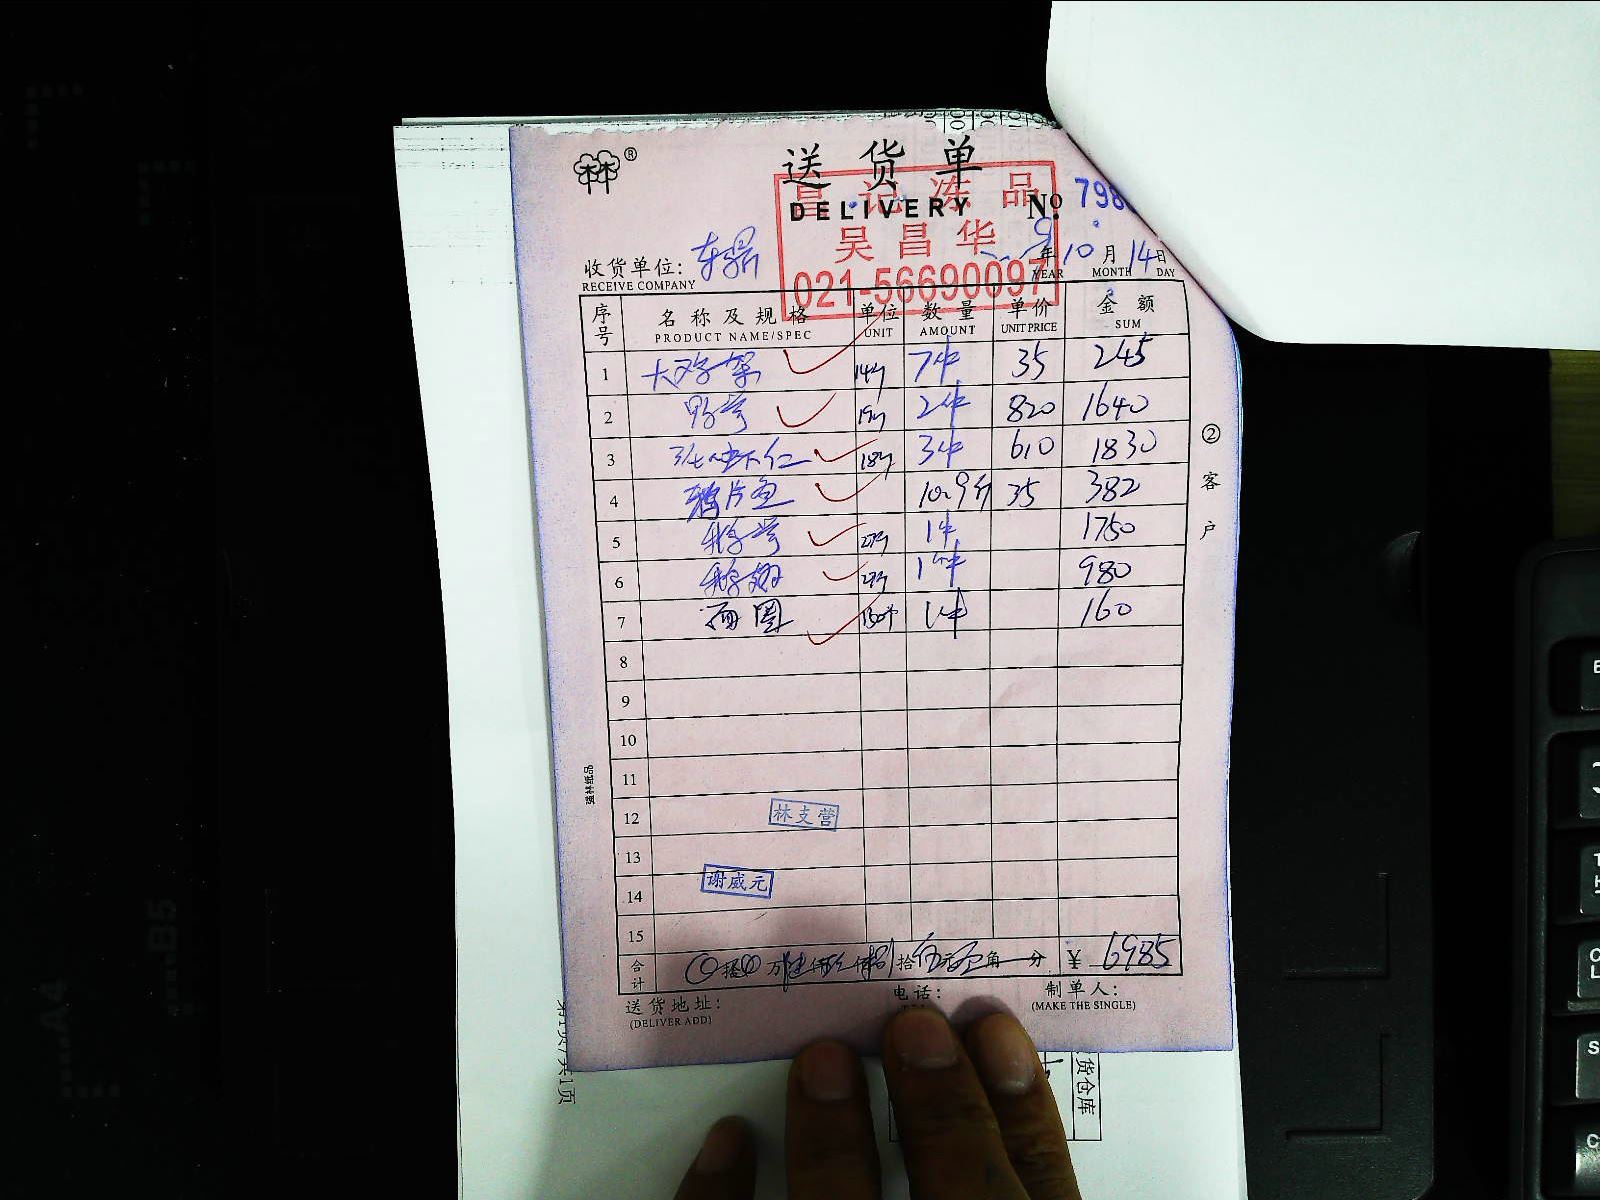 林林®
送货单
DELIVERY
昌记冻品
吴昌华
021-56690097
№ 798
收货单位: 东鼎 9年10月14日
RECEIVE COMPANY YEAR MONTH DAY
序号 名称及规格 单位 数量 单价 金额
PRODUCT NAME/SPEC UNIT AMOUNT UNIT PRICE SUM
1 大鸡架 14 7件 35 245
2 2件 820 1640
3 虾仁 18 3件 610 1830
4 鸦片鱼 10.9斤 35 382
5 1件 1750
6 鹅翅 1件 980
7 面圈 1件 160
8
9
10
11
12 林支营
13
14 谢威元
15
合计 拾 万 仟 佰 捌拾伍元 角 分 ¥ 6985
送货地址: 电话: 制单人:
(DELIVER ADD) (MAKE THE SINGLE)
② 客户
强林纸品
货仓库
B5
A4